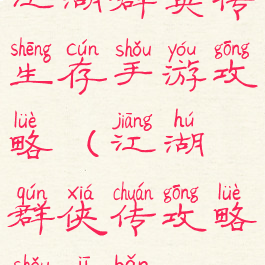 江湖群英传
shēng cún shǒu yóu gōng
生存手游攻
lüè jiāng hú
略（江湖
qún xiá chuán gōng lüè
群侠传攻略
shǒu jī bǎn